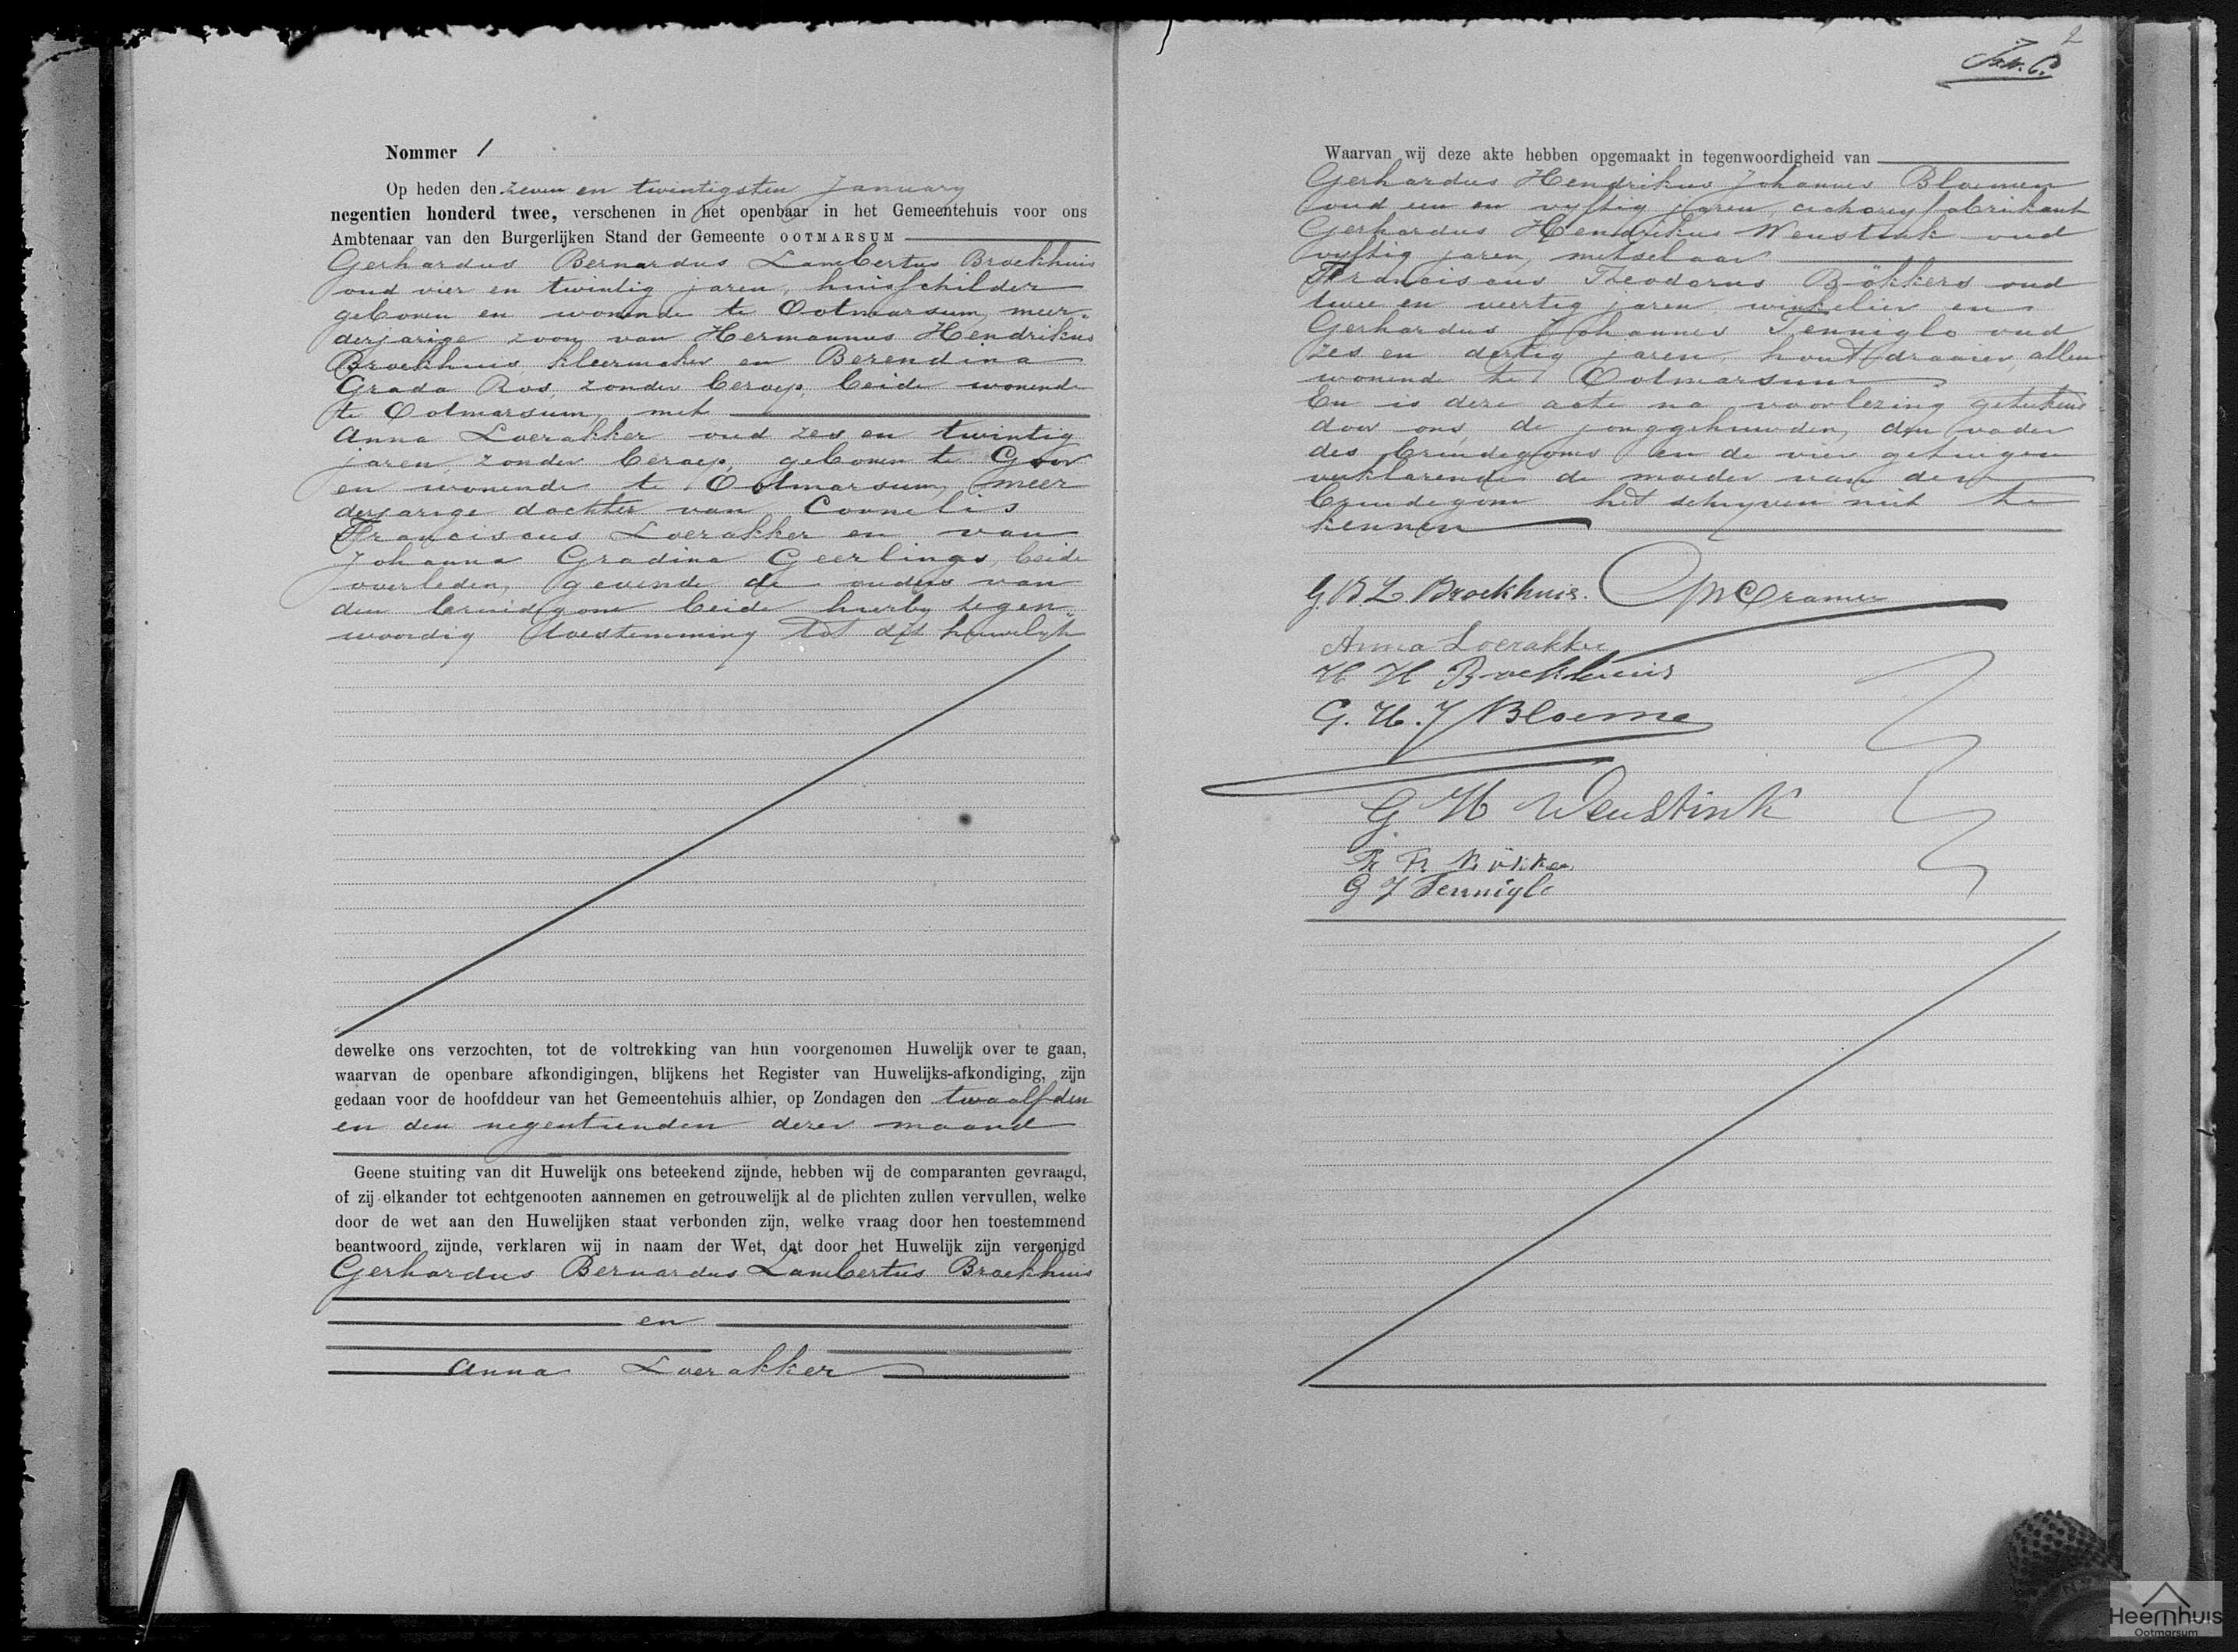 Nommer 1
Op heden den zeven en twintigsten January
negentien honderd twee, verschenen in het openbaar in het Gemeentehuis voor ons
Ambtenaar van den Burgerlijken Stand der Gemeente OOTMARSUM
Gerhardus Bernardus Lambertus Broekhuis
oud vier en twintig jaren, huisschilder
geboren en wonende te Ootmarsum, meer-
derjarige zoon van Hermannus Hendrikus
Broekhuis kleermaker en Berendina
Grada Ros, zonder beroep, beide wonende
te Ootmarsum, met
Anna Loerakker oud zes en twintig
jaren, zonder beroep, geboren te Goor
en wonende te Ootmarsum, meer
derjarige dochter van Cornelis
Franciscus Loerakker en van
Johanna Gradina Geerlings, beide
overleden, gevende de ouders van
den bruidegom beide hierby tegen
woordig toestemming tot dit huwelyk
dewelke ons verzochten, tot de voltrekking van hun voorgenomen Huwelijk over te gaan,
waarvan de openbare afkondigingen, blijkens het Register van Huwelijks-afkondiging, zijn
gedaan voor de hoofddeur van het Gemeentehuis alhier, op Zondagen den twaalfden
en den negentienden dezer maand
Geene stuiting van dit Huwelijk ons beteekend zijnde, hebben wij de comparanten gevraagd,
of zij elkander tot echtgenooten aannemen en getrouwelijk al de plichten zullen vervullen, welke
door de wet aan den Huwelijken staat verbonden zijn, welke vraag door hen toestemmend
beantwoord zijnde, verklaren wij in naam der Wet, dat door het Huwelijk zijn vereenigd
Gerhardus Bernardus Lambertus Broekhuis
en
Anna Loerakker
2
Waarvan wij deze akte hebben opgemaakt in tegenwoordigheid van
Gerhardus Hendrikus Johannes Bloemen
oud een en vyftig jaren, cichoreyfabrikant
Gerhardus Hendrikus Weustink oud
vyftig jaren, metselaar
Franciscus Theodorus Bökkers oud
twee en veertig jaren winkelier en
Gerhardus Johannes Tenniglo oud
zes en dertig jaren, houtdraaier, allen
wonende te Ootmarsum
En is deze acte na voorlezing geteekend
door ons, de jonggehuwden, den vader
des bruidegoms en de vier getuigen
verklarende de moeder van den
bruidegom het schryven niet te
kennen
G.B.L. Broekhuis. Cramer
Anna Loerakker
H H Broekhuis
G. H. J Bloeme
G H Weustink
G J Tenniglo
Heemhuis
Ootmarsum